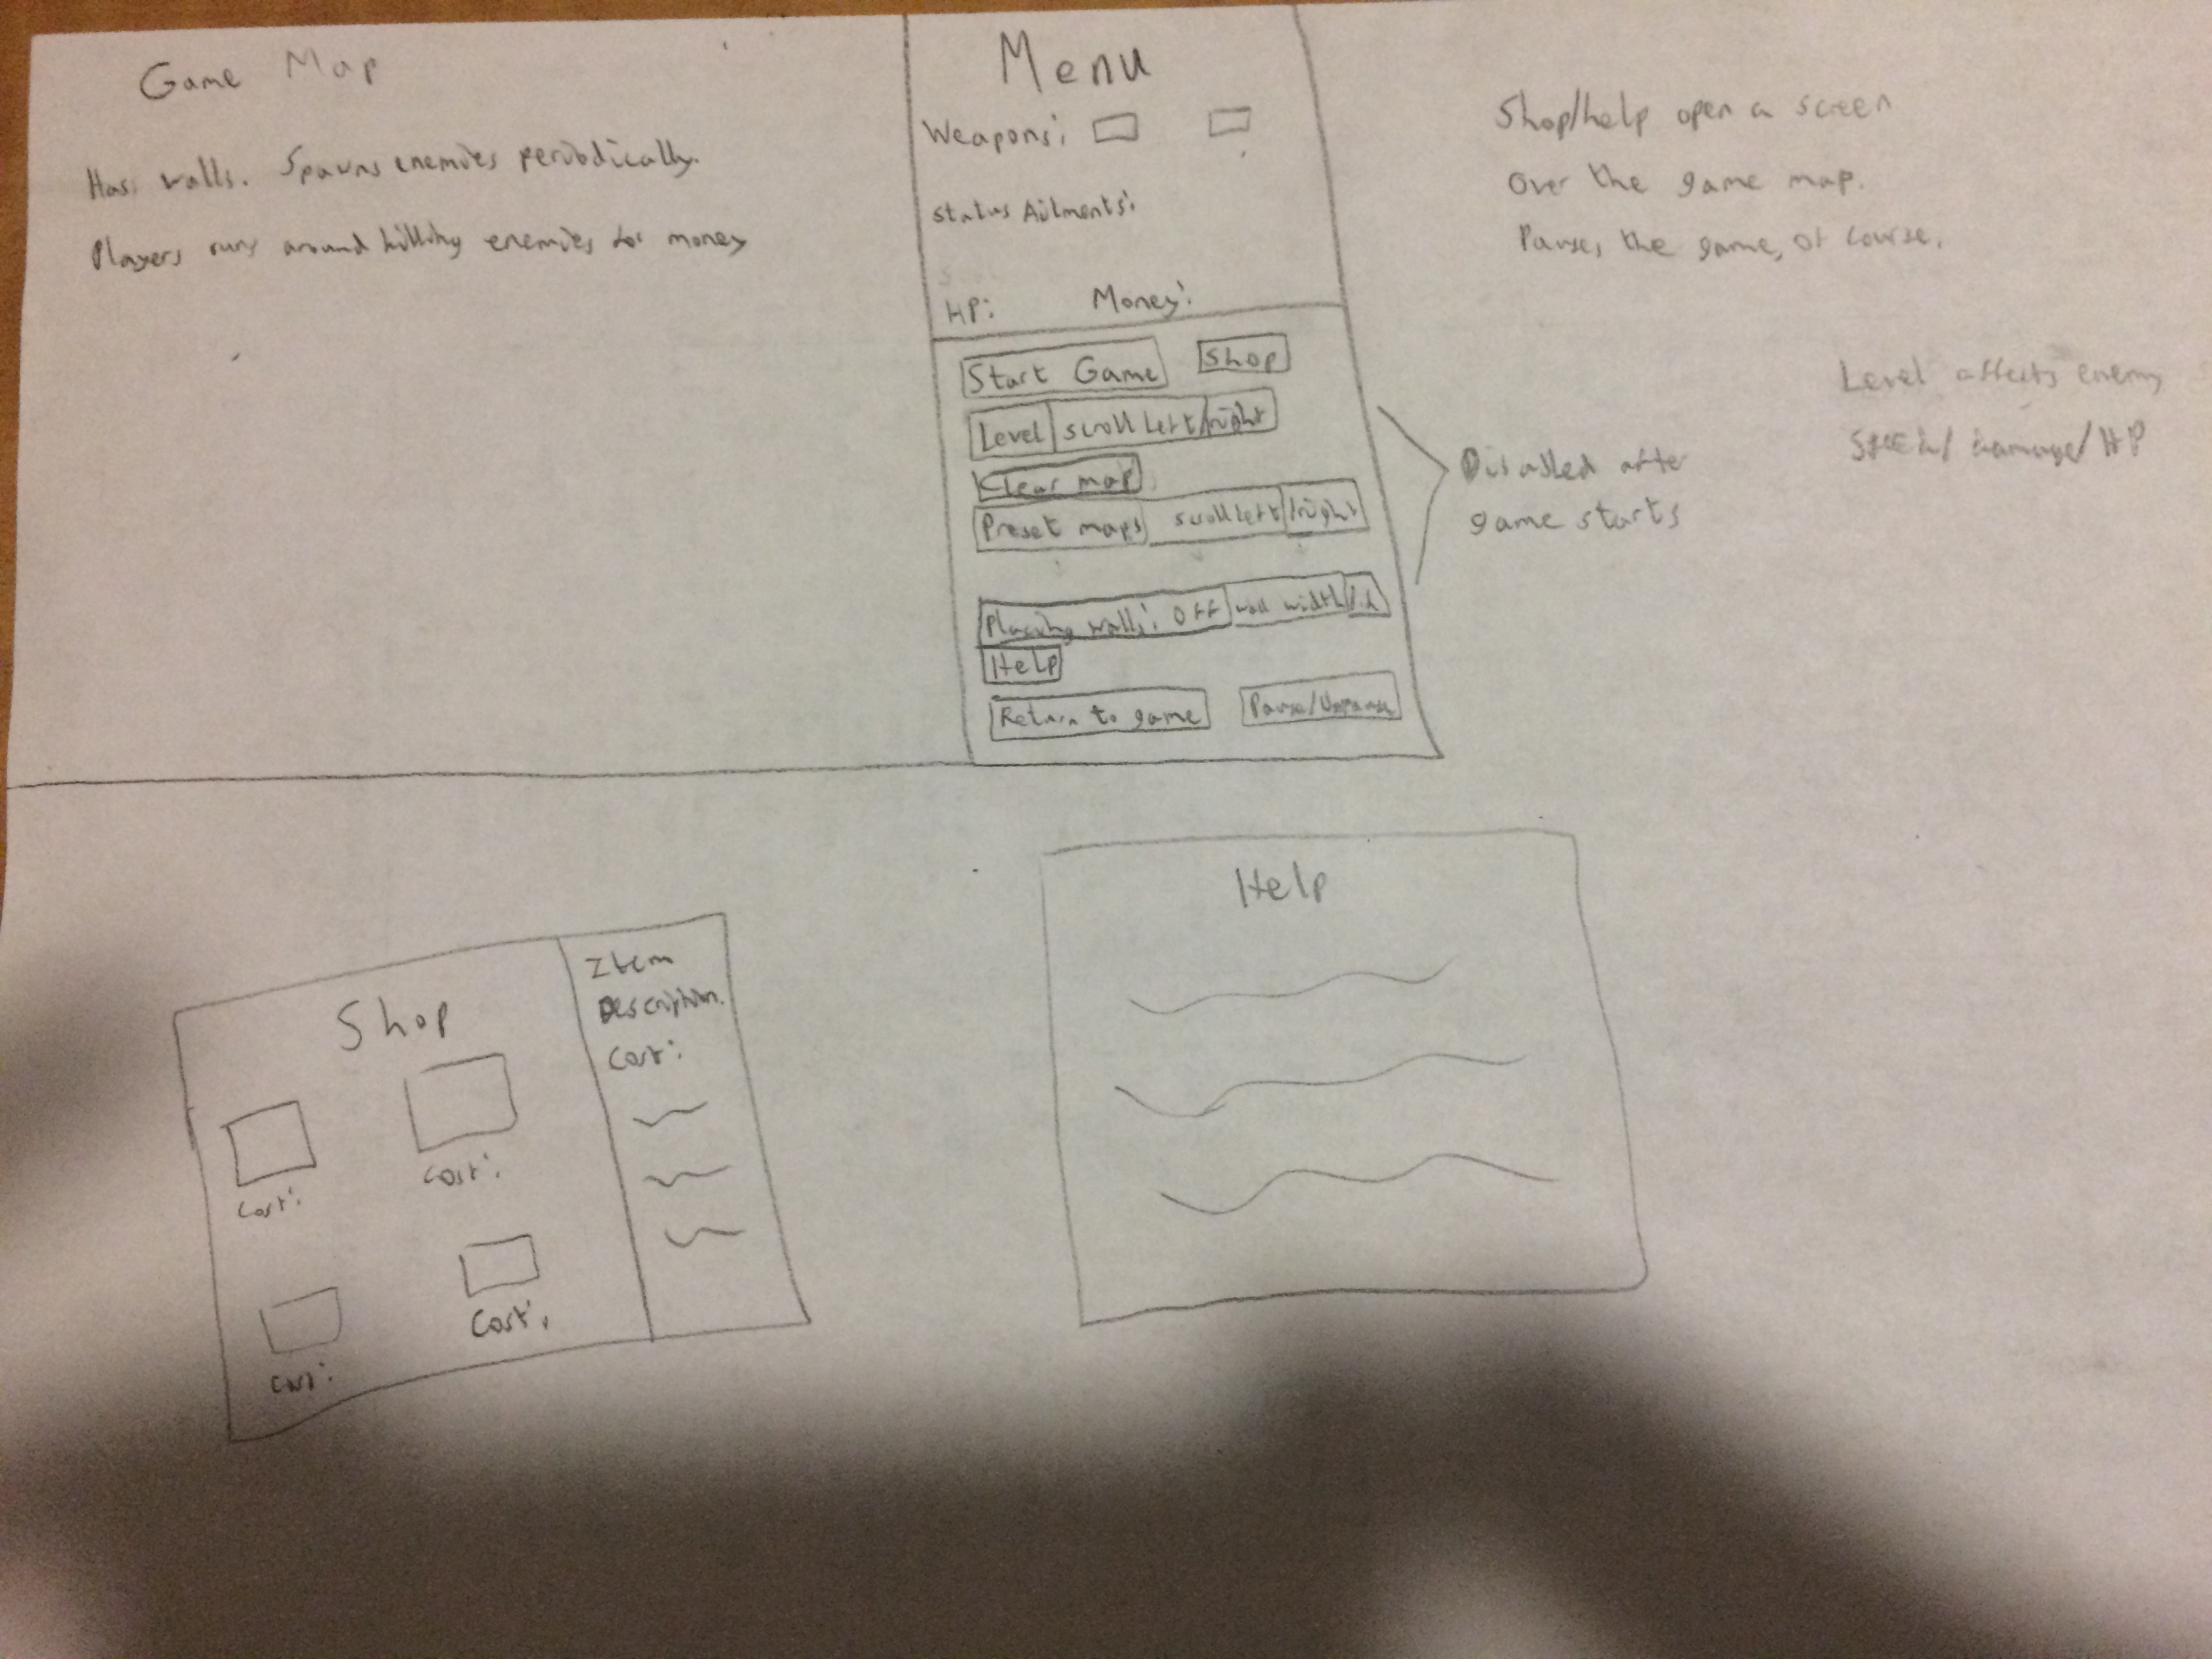 Game Map
Has walls. Spawns enemies periodically.
Players runs around killing enemies for money
Menu
Weapons:
Status Ailments:
HP: Money:
Start Game Shop
Level scroll left/right
Clear map
Preset maps scroll left/right
Placing walls: OFF wall width
Help
Return to game Pause/Unpause
Shop/help open a screen
over the game map.
Pauses the game, of course.
Level affects enemy
Speed/ damage/ HP
Disabled after
game starts
Shop
Cost:
Cost:
Cost:
Cost:
Item
Description.
Cost:
Help